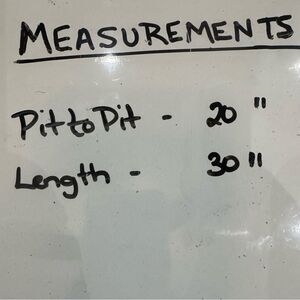 MEASUREMENTS
Pit to Pit - 20 "
Length - 30 "